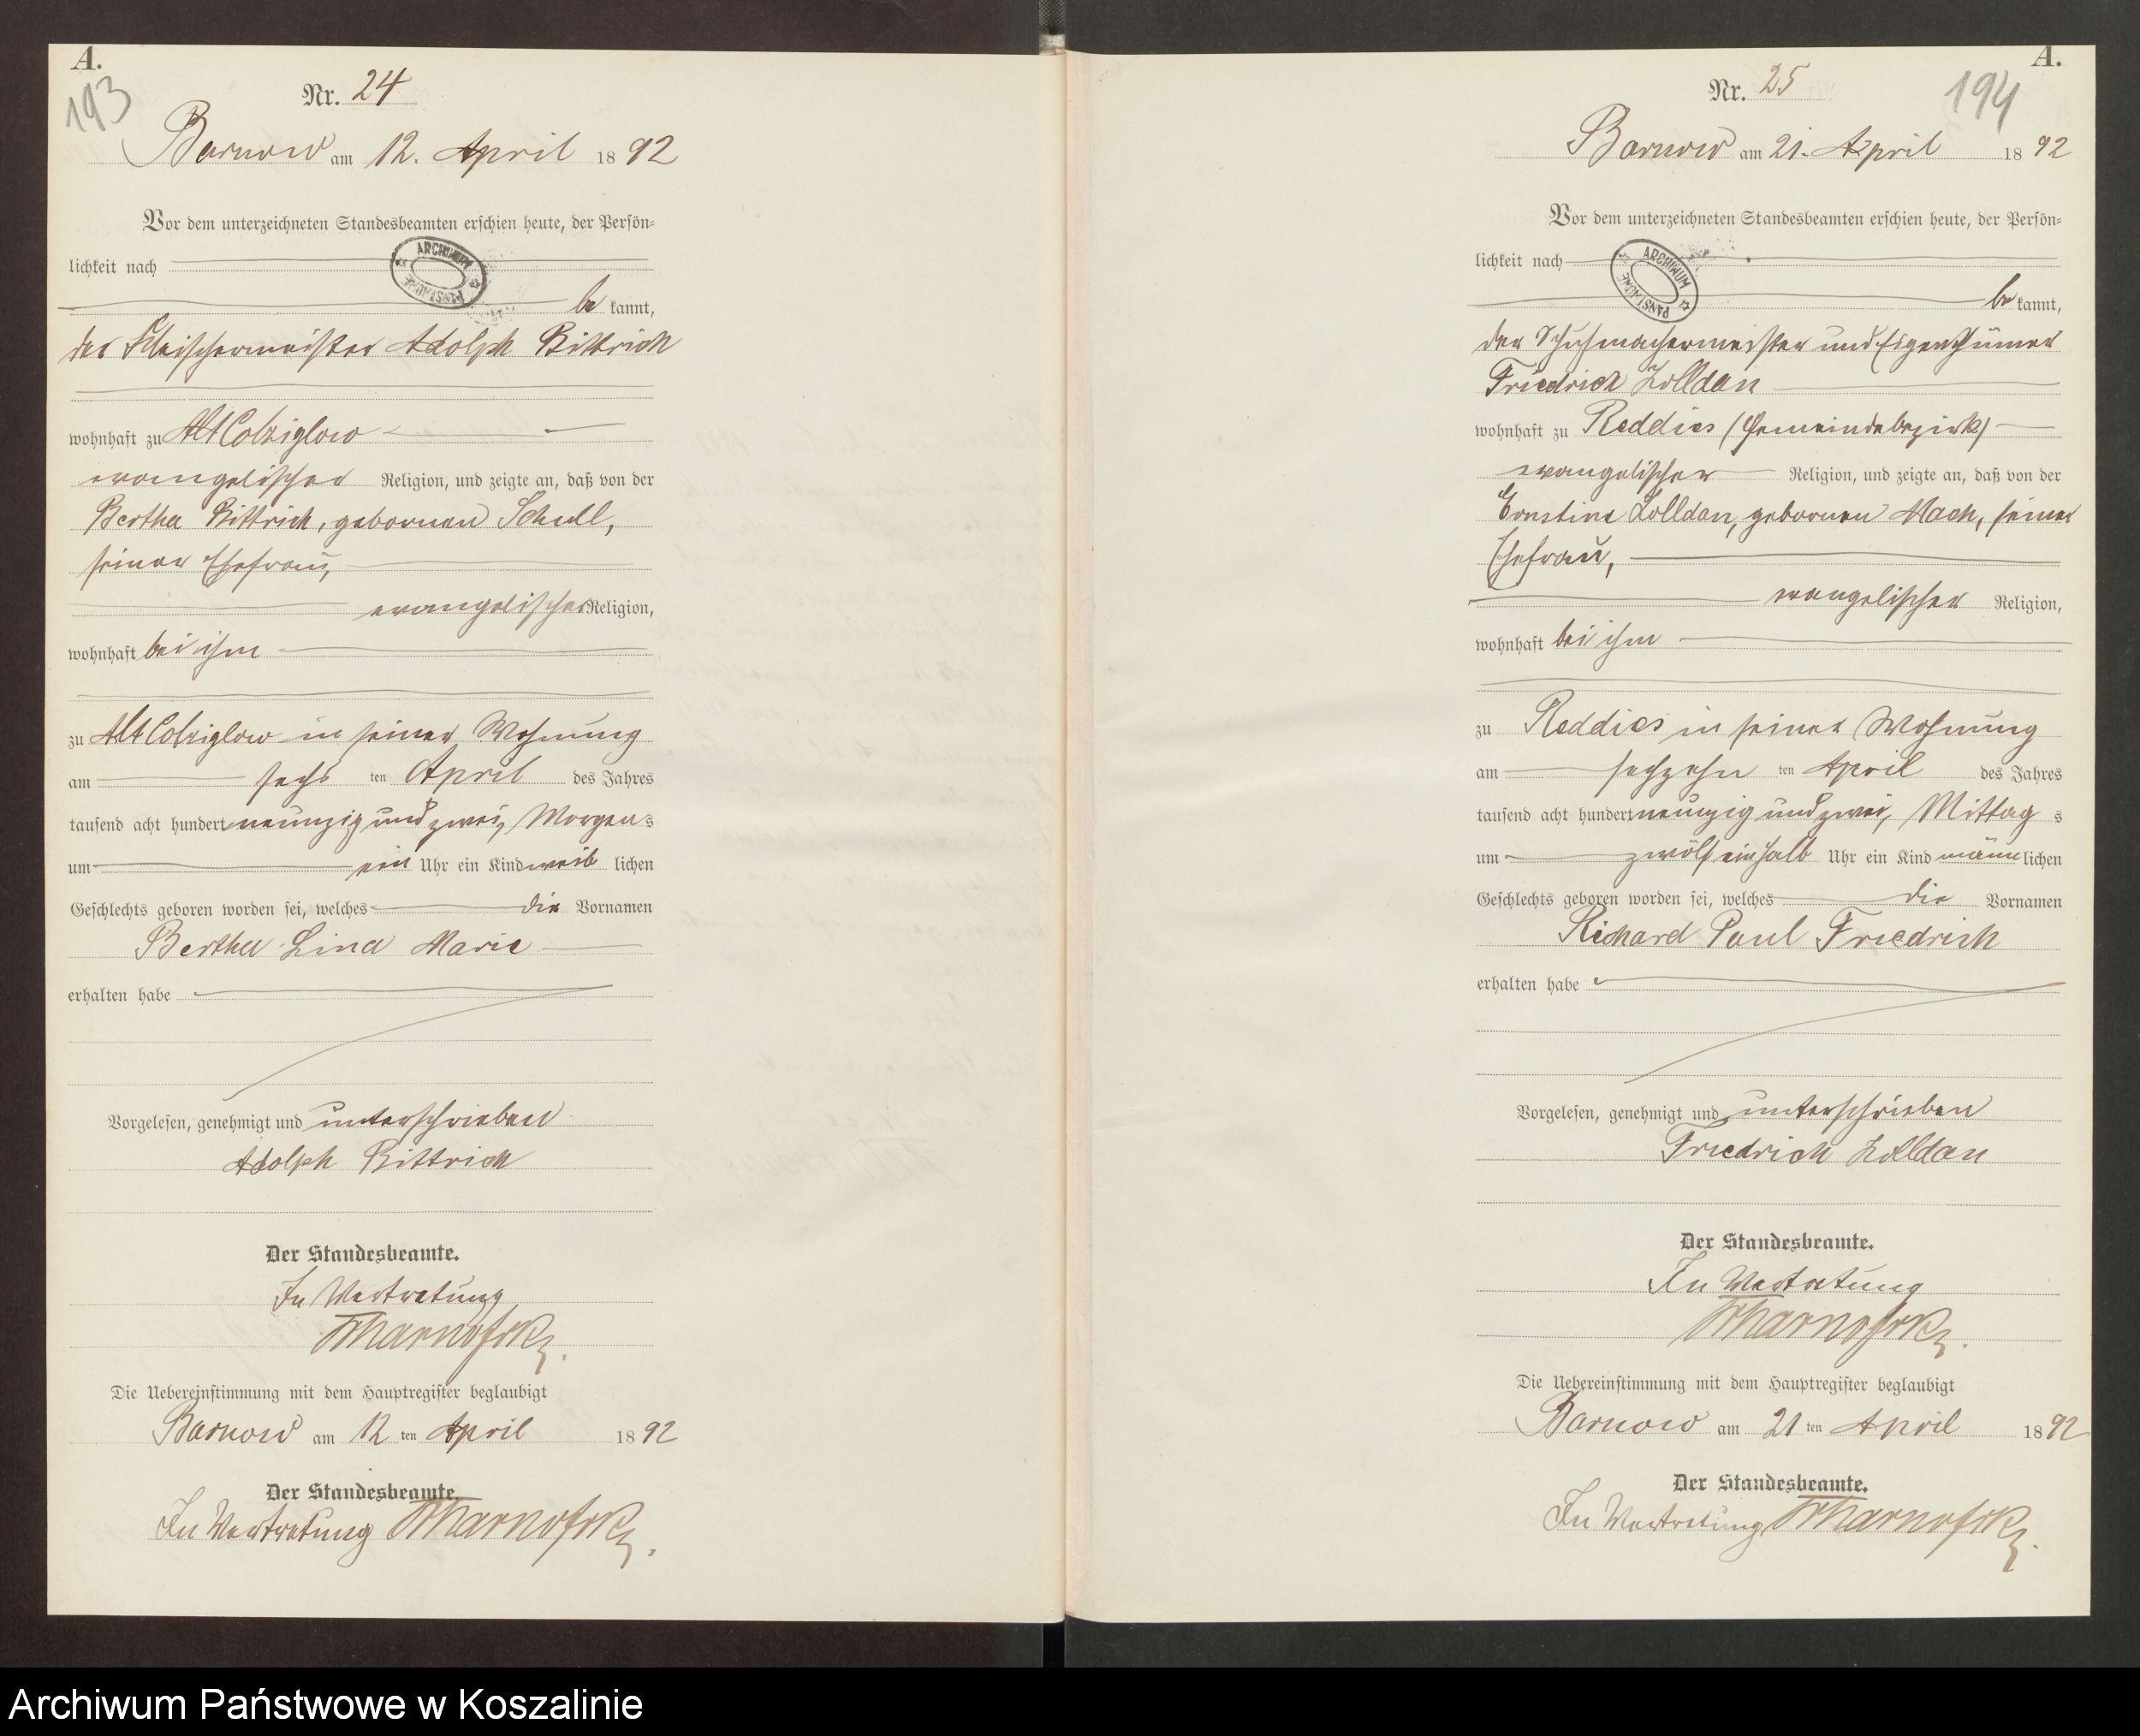 A.
193
Nr. 24
Barnow am 12. April 1892
Vor dem unterzeichneten Standesbeamten erschien heute, der Persön-
lichkeit nach
ARCHIWUM PAŃSTWOWE
be kannt,
der Fleischermeister Adolph Rittrich
wohnhaft zu Alt Colziglow
evangelischer Religion, und zeigte an, daß von der
Bertha Rittrich, geborenen Schull,
seiner Ehefrau,
evangelischer Religion,
wohnhaft bei ihm
zu Alt Colziglow in seiner Wohnung
am sechs ten April des Jahres
tausend acht hundert neunzig und zwei, Morgens
um ein Uhr ein Kind weib lichen
Geschlechts geboren worden sei, welches die Vornamen
Bertha Lina Marie
erhalten habe
Vorgelesen, genehmigt und unterschrieben
Adolph Rittrich
Der Standesbeamte.
In Vertretung
Die Uebereinstimmung mit dem Hauptregister beglaubigt
Barnow am 12 ten April 1892
Der Standesbeamte.
In Vertretung
A.
194
Nr. 25
Barnow am 21. April 1892
Vor dem unterzeichneten Standesbeamten erschien heute, der Persön-
lichkeit nach
ARCHIWUM PAŃSTWOWE
be kannt,
der Schuhmachermeister und Eigenthümer
Friedrich Zolldan
wohnhaft zu Reddies (Gemeindebezirk)
evangelischer Religion, und zeigte an, daß von der
Ernstine Zolldan, geborenen Mach, seiner
Ehefrau,
evangelischer Religion,
wohnhaft bei ihm
zu Reddies in seiner Wohnung
am sechzehn ten April des Jahres
tausend acht hundert neunzig und zwei, Mittag s
um zwölf einhalb Uhr ein Kind männ lichen
Geschlechts geboren worden sei, welches die Vornamen
Richard Paul Friedrich
erhalten habe
Vorgelesen, genehmigt und unterschrieben
Friedrich Zolldan
Der Standesbeamte.
In Vertretung
Die Uebereinstimmung mit dem Hauptregister beglaubigt
Barnow am 21 ten April 1892
Der Standesbeamte.
In Vertretung
Archiwum Państwowe w Koszalinie